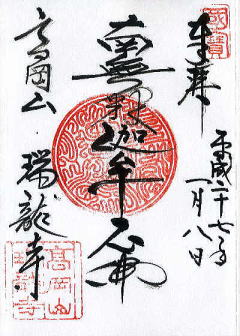 國寶
奉拝
平成二十七年
一月八日
南無釈迦牟尼佛
高岡山
瑞龍寺
高岡山
瑞龍寺